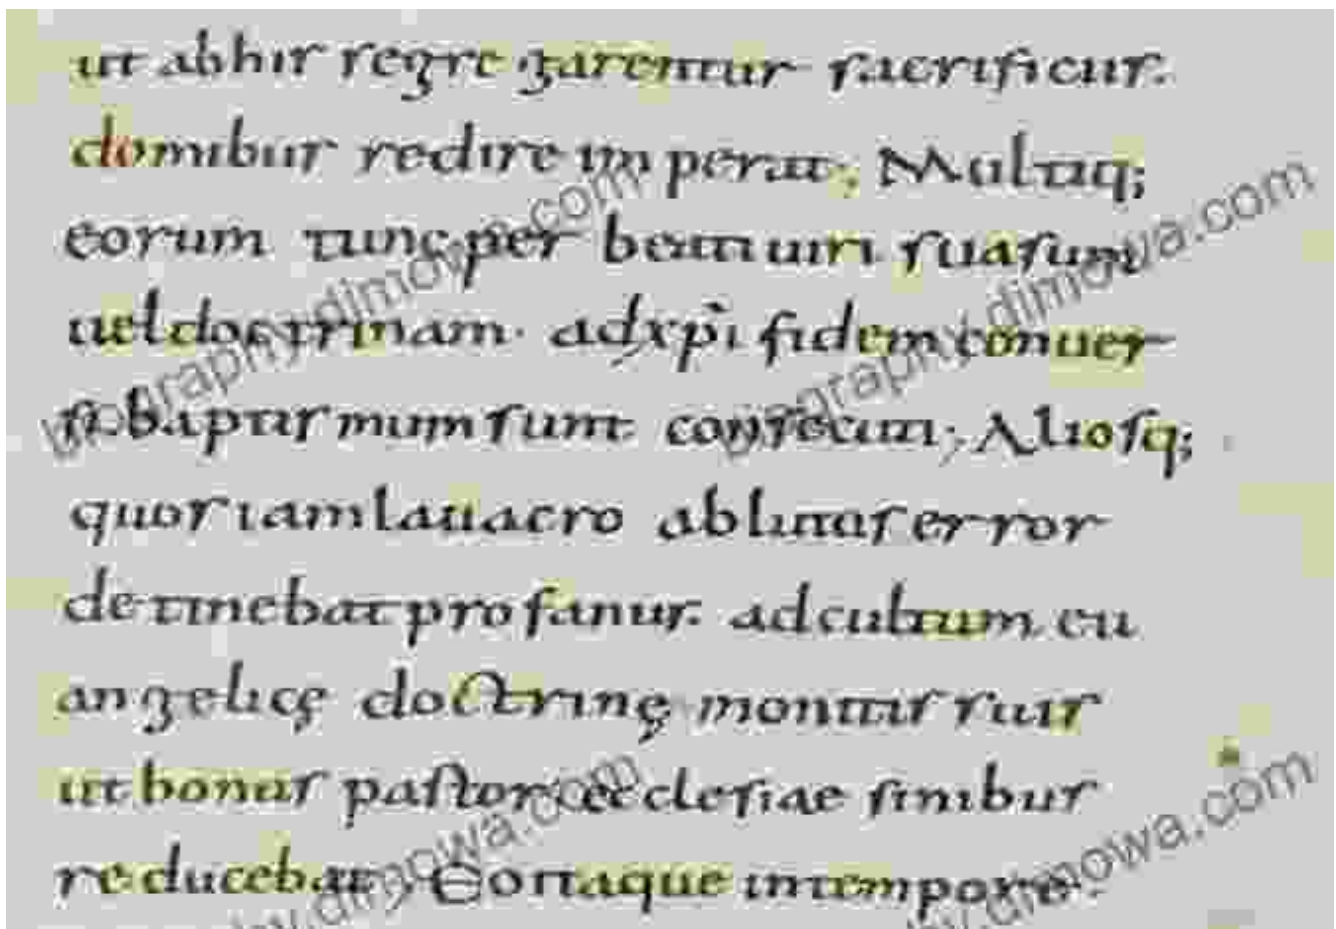 ut abhis regregarentur sacrificiis.
domibus redire imperat; Multiq;
eorum tunc per beati uiri suasum
uel doctrinam. ad xp̄i fidem conuer
si. baptismum sunt consecuti; Aliosq;
quos iam lauacro ablutos error
detinebat profanus. ad cultum eu
angelicę doctrinę monitis suis
ut bonus pastor ecclesiae sinibus
reducebat; Eo itaque in tempore.